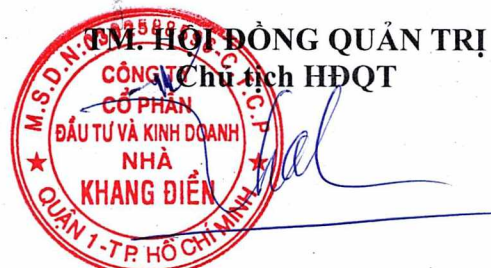 TM. HỘI ĐỒNG QUẢN TRỊ
Chủ tịch HĐQT
CÔNG TY
CỔ PHẦN
ĐẦU TƯ VÀ KINH DOANH
NHÀ
KHANG ĐIỀN
QUẬN 1-T.P. HỒ CHÍ MINH